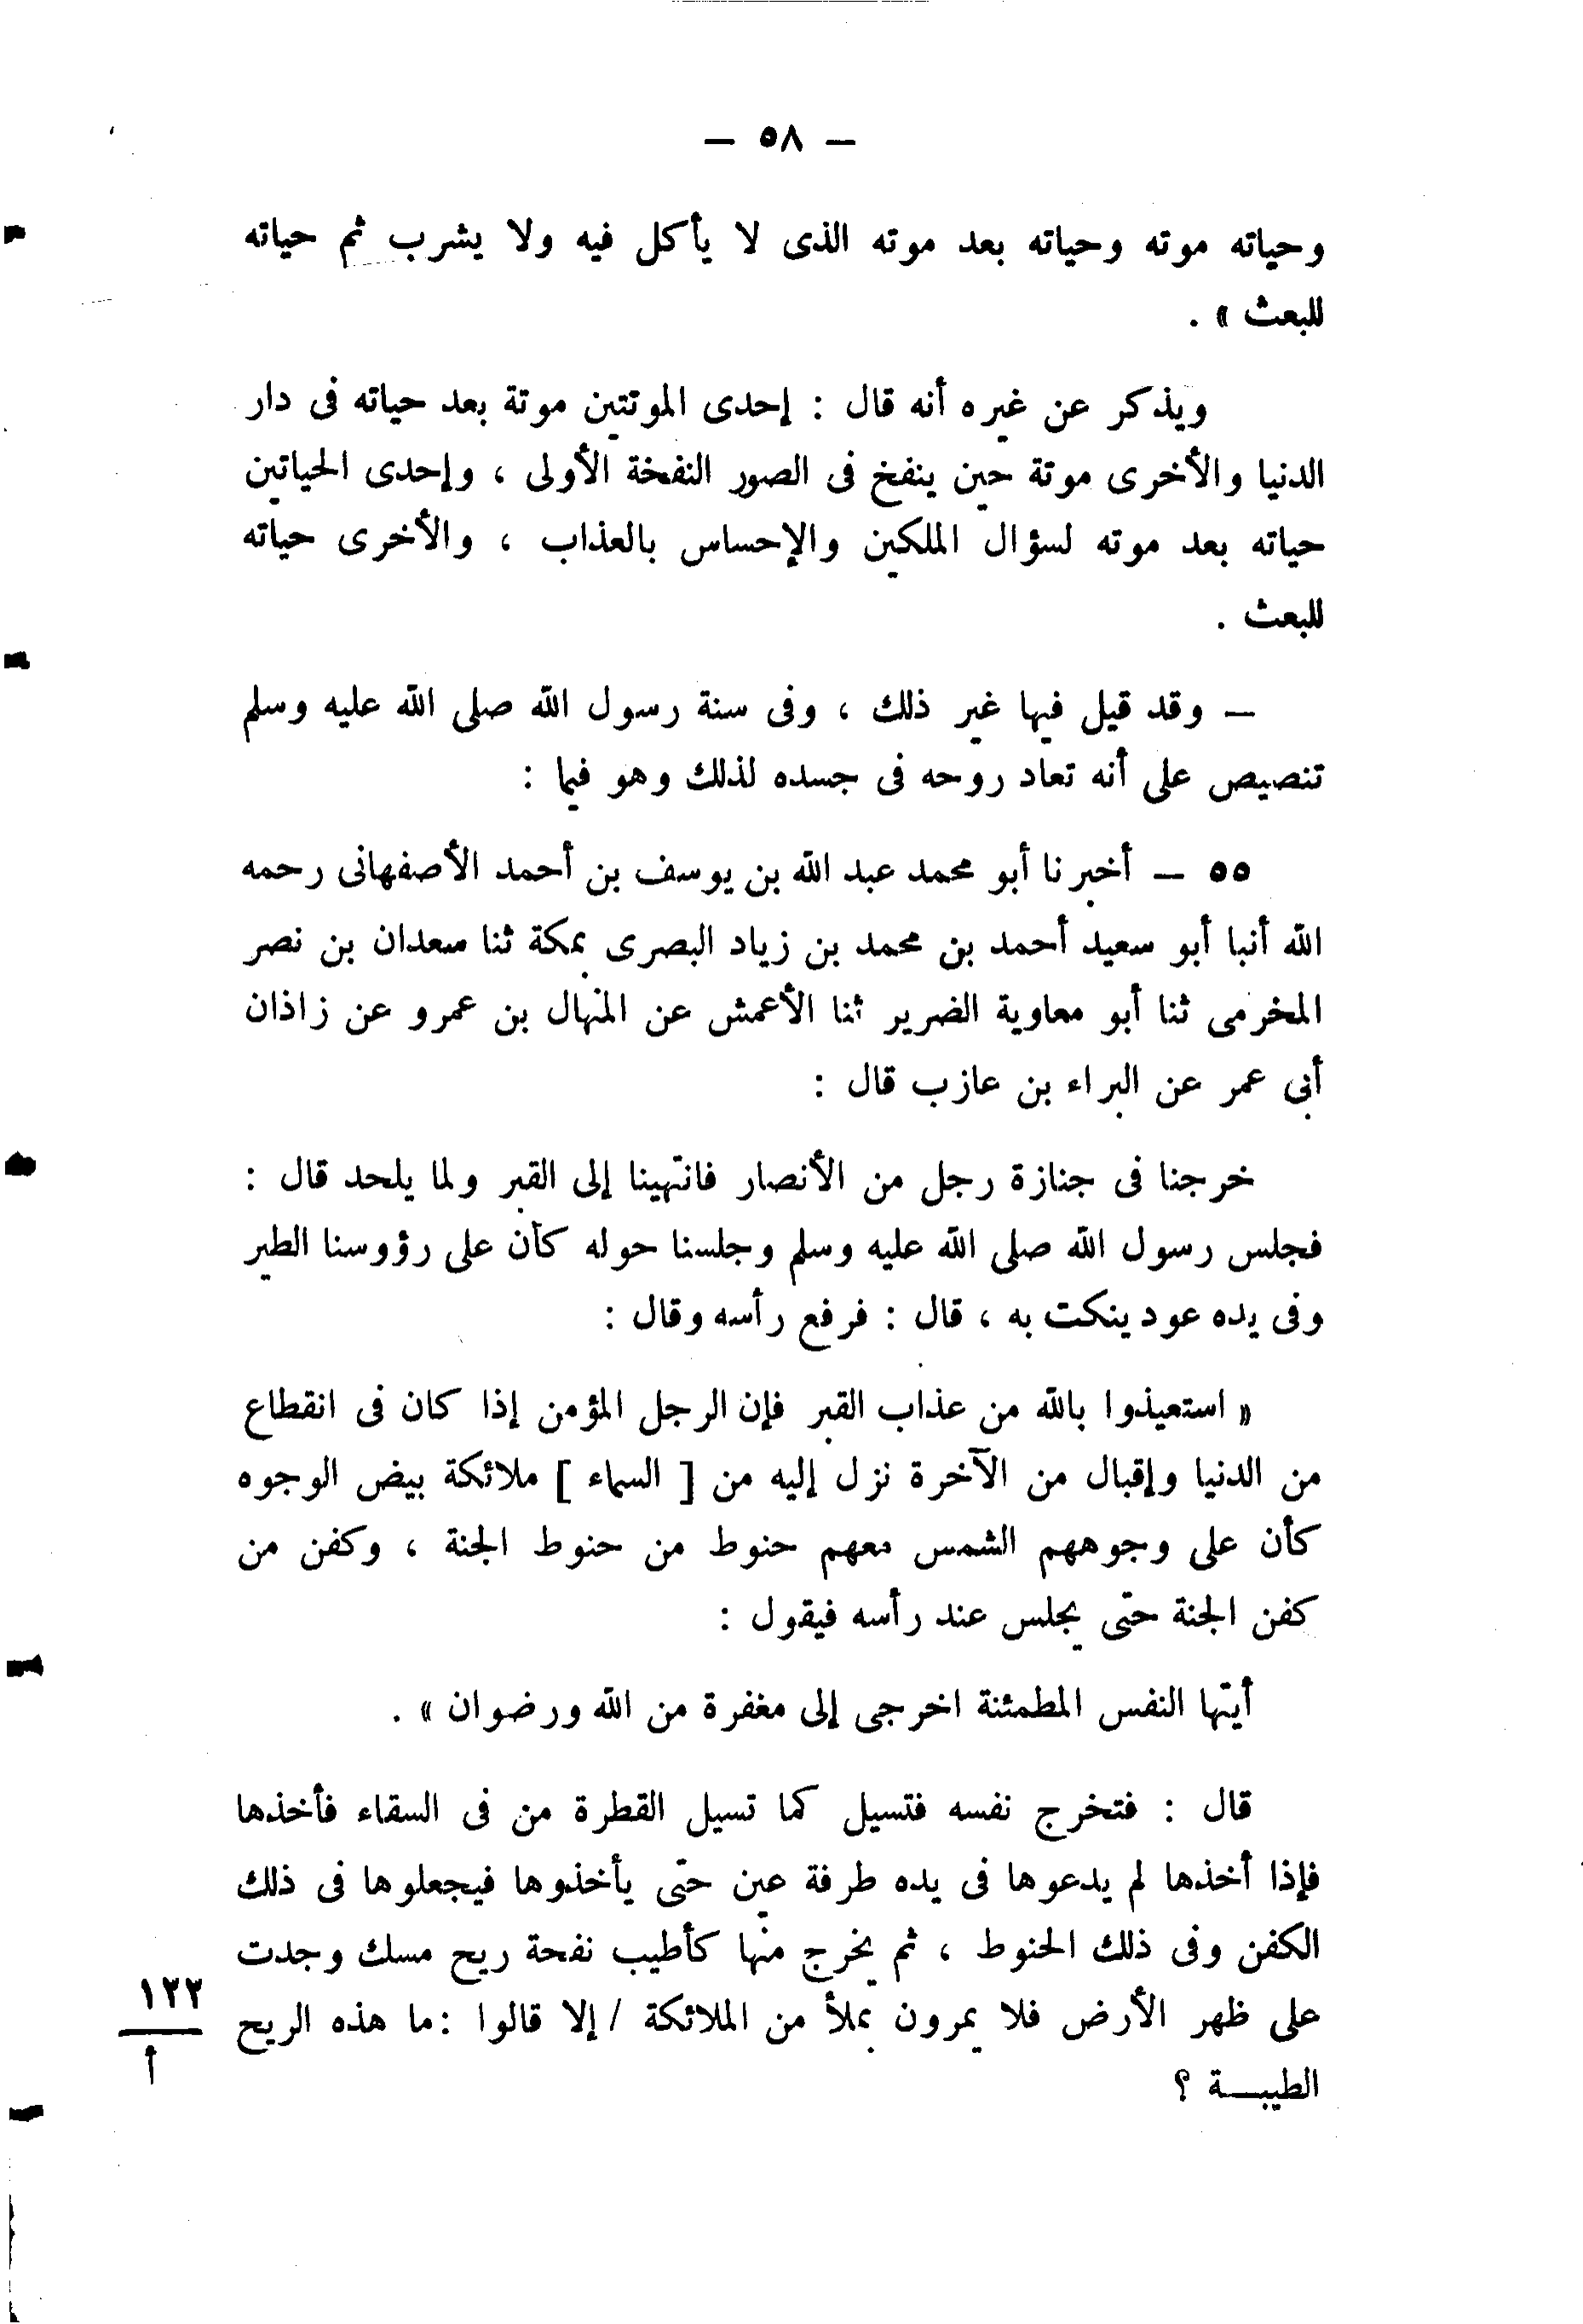 — ٥٨ —
وحياته موته وحياته بعد موته الذى لا يأكل فيه ولا يشرب ثم حياته
للبعث » .
ويذكر عن غيره أنه قال : إحدى الموتتين موتة بعد حياته فى دار
الدنيا والأخرى موتة حين ينفخ فى الصور النفخة الأولى ، وإحدى الحياتين
حياته بعد موته لسؤال الملكين والإحساس بالعذاب ، والأخرى حياته
للبعث .
— وقد قيل فيها غير ذلك ، وفى سنة رسول الله صلى الله عليه وسلم
تنصيص على أنه تعاد روحه فى جسده لذلك وهو فيما :
٥٥ — أخبرنا أبو محمد عبد الله بن يوسف بن أحمد الأصفهانى رحمه
الله أنبا أبو سعيد أحمد بن محمد بن زياد البصرى بمكة ثنا سعدان بن نصر
المخرمى ثنا أبو معاوية الضرير ثنا الأعمش عن المنهال بن عمرو عن زاذان
أبى عمر عن البراء بن عازب قال :
خرجنا فى جنازة رجل من الأنصار فانتهينا إلى القبر ولما يلحد قال :
فجلس رسول الله صلى الله عليه وسلم وجلسنا حوله كأن على رؤوسنا الطير
وفى يده عود ينكت به ، قال : فرفع رأسه وقال :
« استعيذوا بالله من عذاب القبر فإن الرجل المؤمن إذا كان فى انقطاع
من الدنيا وإقبال من الآخرة نزل إليه من [ السماء ] ملائكة بيض الوجوه
كأن على وجوههم الشمس معهم حنوط من حنوط الجنة ، وكفن من
كفن الجنة حتى يجلس عند رأسه فيقول :
أيتها النفس المطمئنة اخرجى إلى مغفرة من الله ورضوان » .
قال : فتخرج نفسه فتسيل كما تسيل القطرة من فى السقاء فأخذها
فإذا أخذها لم يدعوها فى يده طرفة عين حتى يأخذوها فيجعلوها فى ذلك
الكفن وفى ذلك الحنوط ، ثم يخرج منها كأطيب نفحة ريح مسك وجدت
على ظهر الأرض فلا يمرون بملأ من الملائكة / إلا قالوا : ما هذه الريح
الطيبـــة ؟
١٢٢
أ